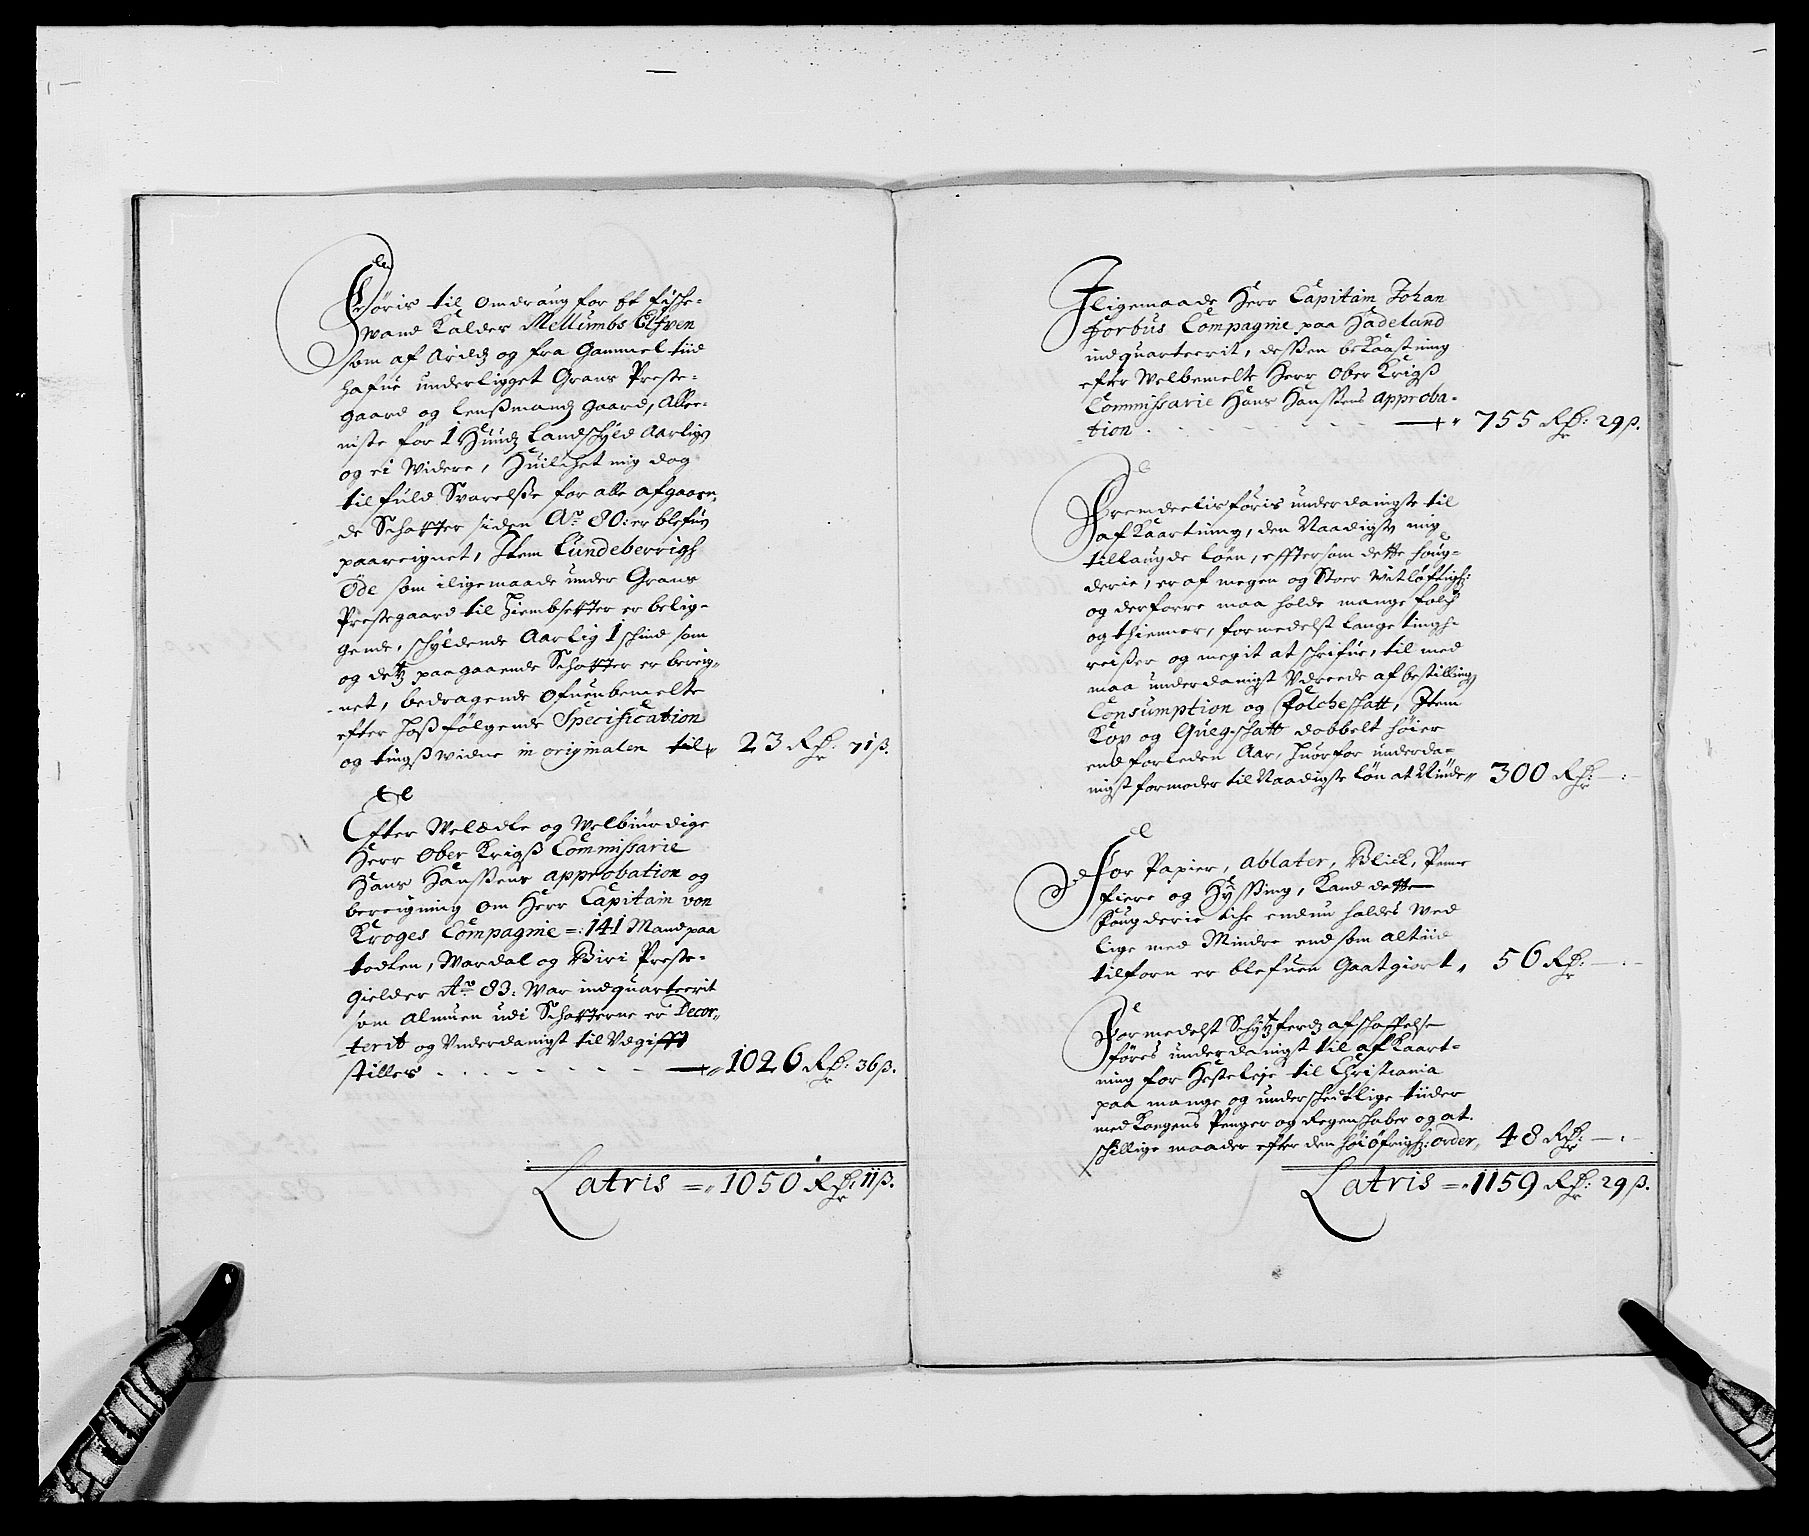 Føris til omdraug for Et fische-
wand Kalder Mellumbs Elfven
som af Arildz og fra Gammel tiid
hafue underligget Grans Preste-
gaard og Lenssmandz gaard, Alle-
niste for 1 Huudz Landschyld Aarligen
og ei Widere, Huilchet mig dog
til fuld Svarelsse for alle afgaaen-
de Schatter siden Ao 80: er blefuen
paareignet, Item Lundeberrigs
Öde som iligemaade under Grans
Prestegaard til Hiembsetter er belig-
gende, schyldende Aarlig 1 schind som
og detz paagaaende Schatter er bereig-
net, bedragende ofuenbemelte
efter hossfølgende Specification
og tingss widne in originalen til „ 23 Rdr: 71 ß.
Efter Welædle og Welbiurdige
Herr Ober Krigss Commissarie
Hans Hanssens approbation og
bereigning om Herr Capitain von
Kroges Compagnie =: 141 Mand paa
todten, Wardal og Biri Preste-
gielder Ao 83: War indquarteerit
som Almuen udi Schatterne er Decor-
terit og Underdanigst til Udgifft
stilles . . . . . . . . — „ 1026 Rdr: 36 ß.
Latris = „ 1050 Rdr: 11 ß.
Iligemaade Herr Capitain Johan
Forbus Compagnie paa Hadeland
indquarteerit, dessen bekaastning
efter Welbemelte Herr Ober Krigss
Commissarie Hans Hanssens Approba-
tion . . . . . . — „ 755 Rdr: 29 ß.
Fremdeelis føris underdanigste til
afkaartning, den Naadigste mig
tillaugde løen, effter som dette foug-
derie, er af megen og Stoer Witløftigh:
og derforre maa holde mange folch
og thienner, formedelst lange tingh-
reisser og megit at schrifue, til med
maa underdanigst Værede af bestilling
Consumption og Folcheschatt, Item
Kop og Quegschatt dobbelt høier
end forleden Aar, huorfor underda-
nigst formoder til Naadigste løn at Niude „ 300 Rdr: — : -
For Papier, ablater, Blick, Penne
fiere og Hyssing, Kand dette
fougderie iche endnu holdes wed
lige med Mindre end som altiid
tilforn er blefuen Gaatgiort „ 56 Rdr: — : -
Formedelst Schytzferdz afschaffelse
føres underdanigst til afkaart-
ning for Hesteleje til Christiania
paa mange og underschedtlige tiider
med Kongens Penger og Regenschaber og at-
schillige maader efter den høiøfrigh: order „ 48 Rdr: — : -
Latris = „ 1159 Rdr: 29 ß.